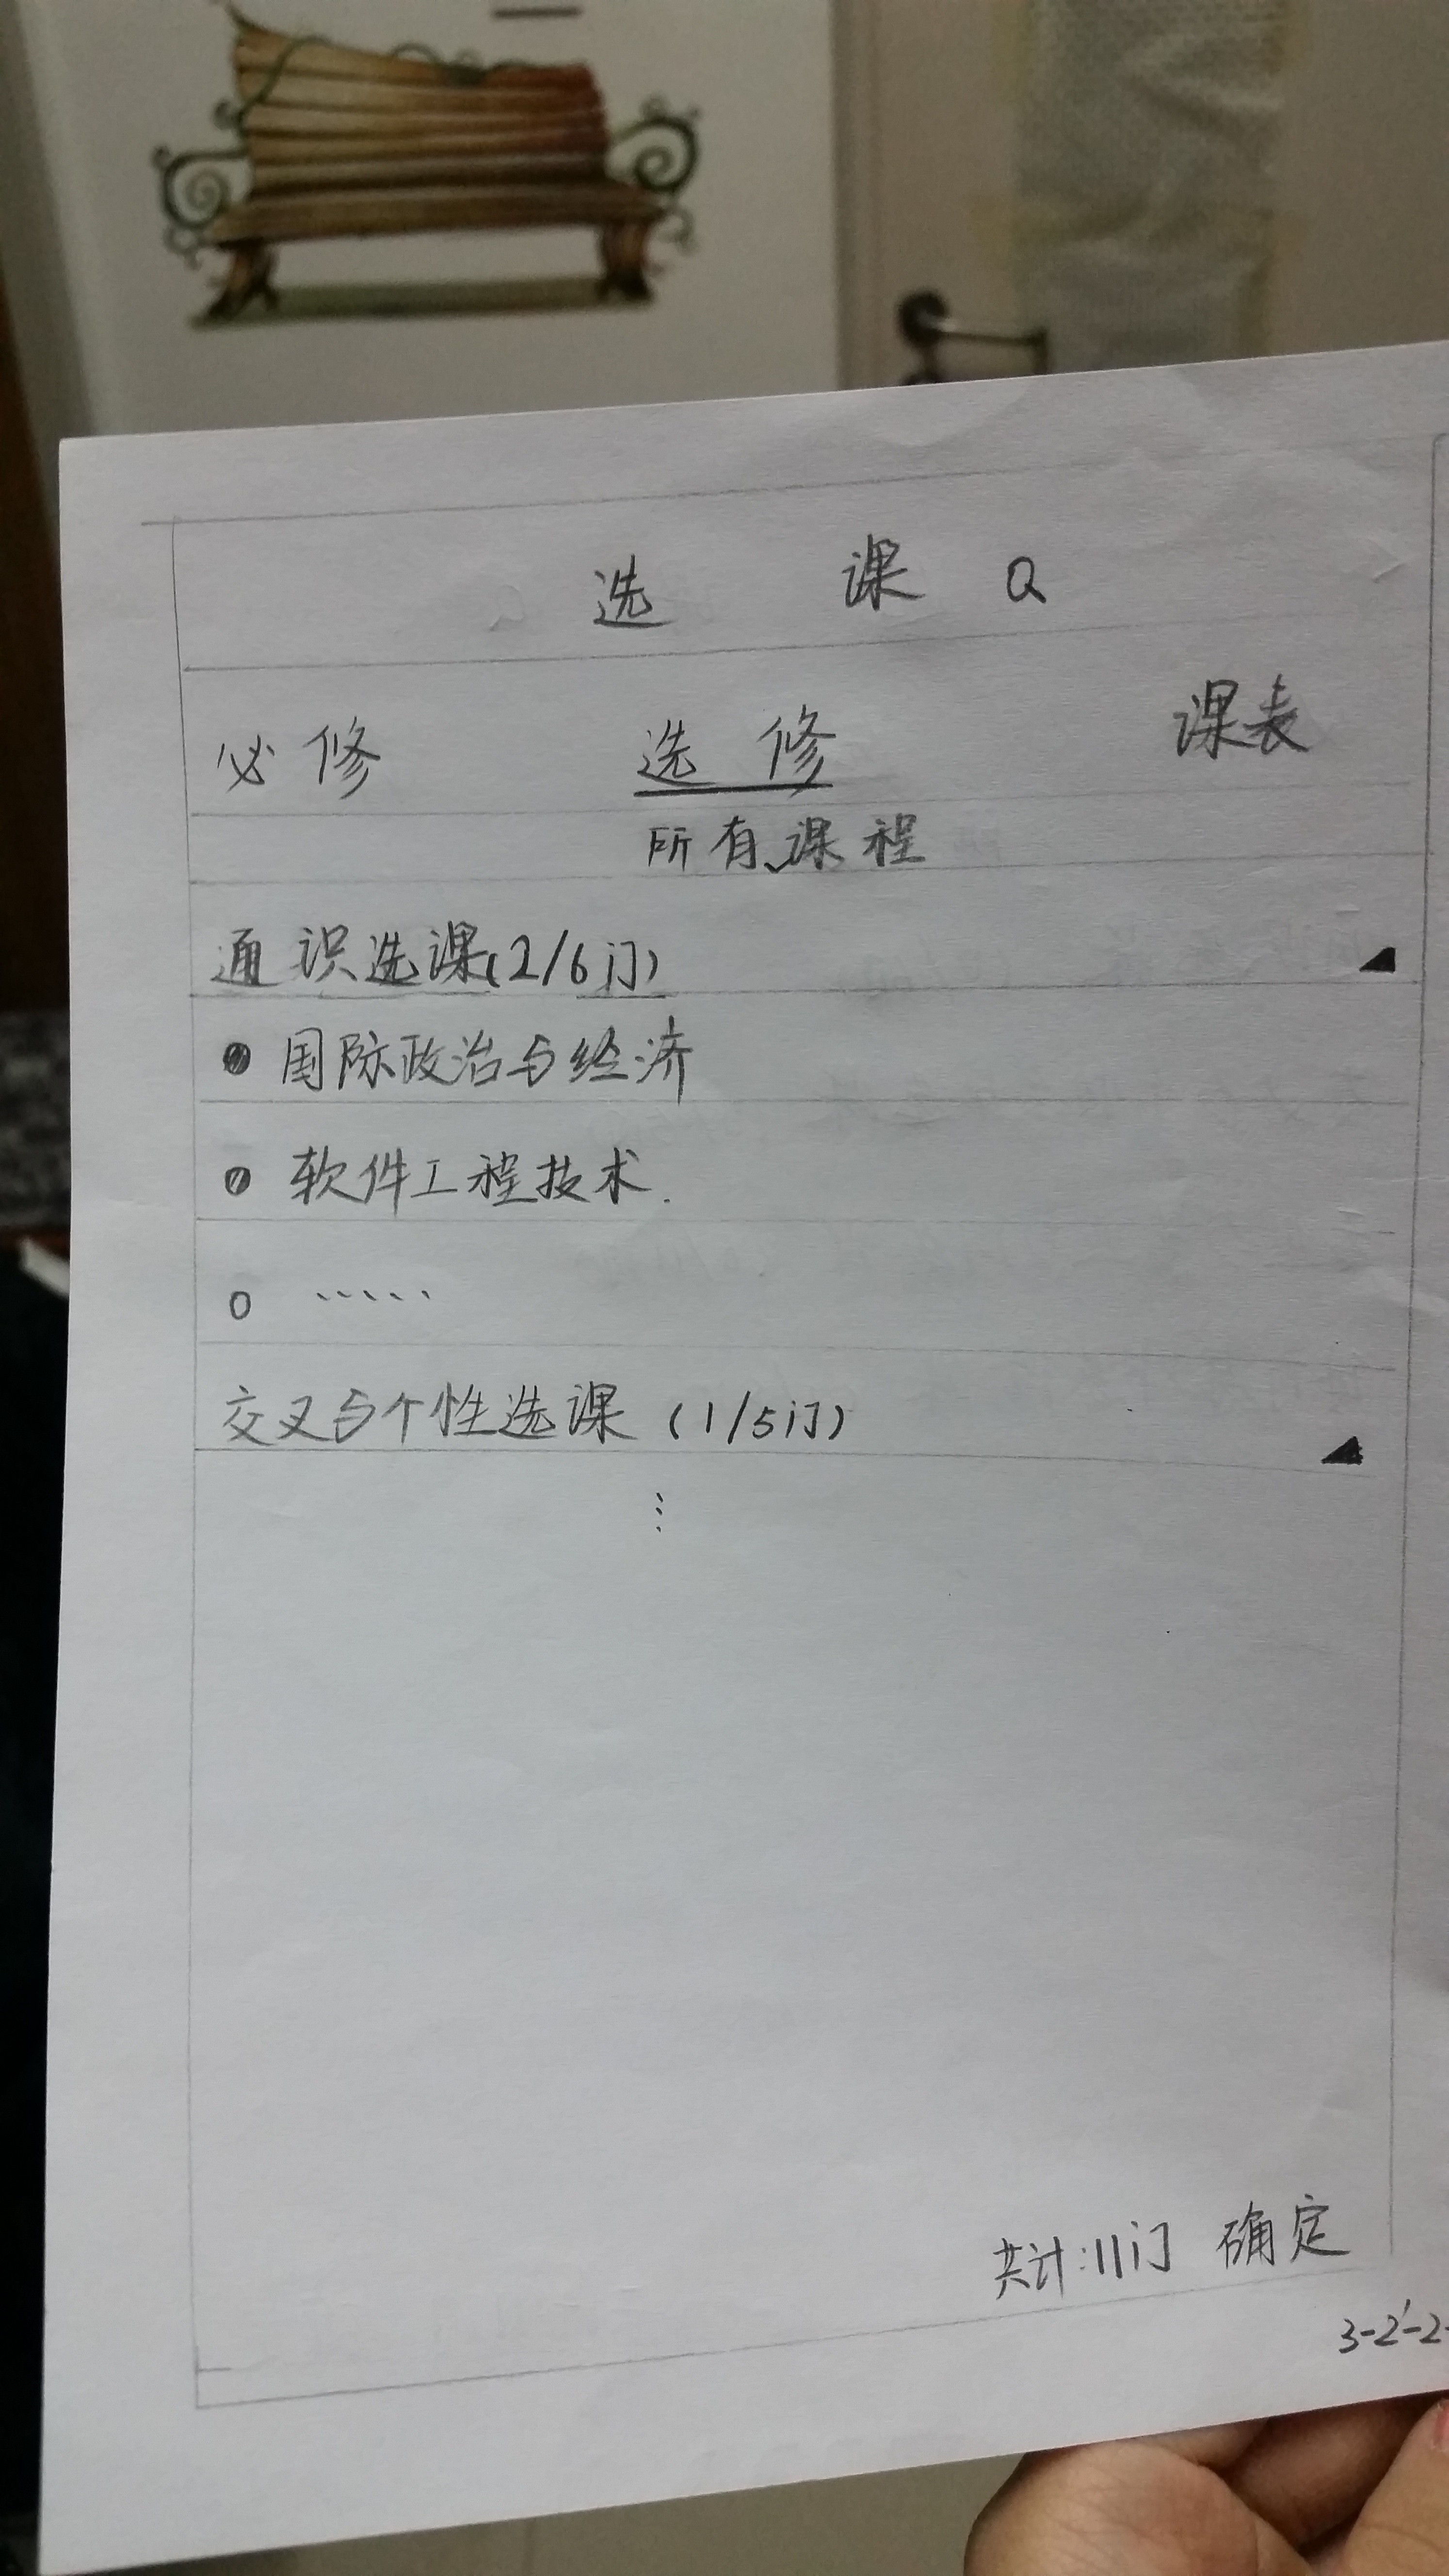 选 课
必修 选修 课表
所有课程
通识选课(2/6门)
国际政治与经济
软件工程技术
……
交叉与个性选课 (1/5门)
⋮
共计:11门 确定
3-2'-2-